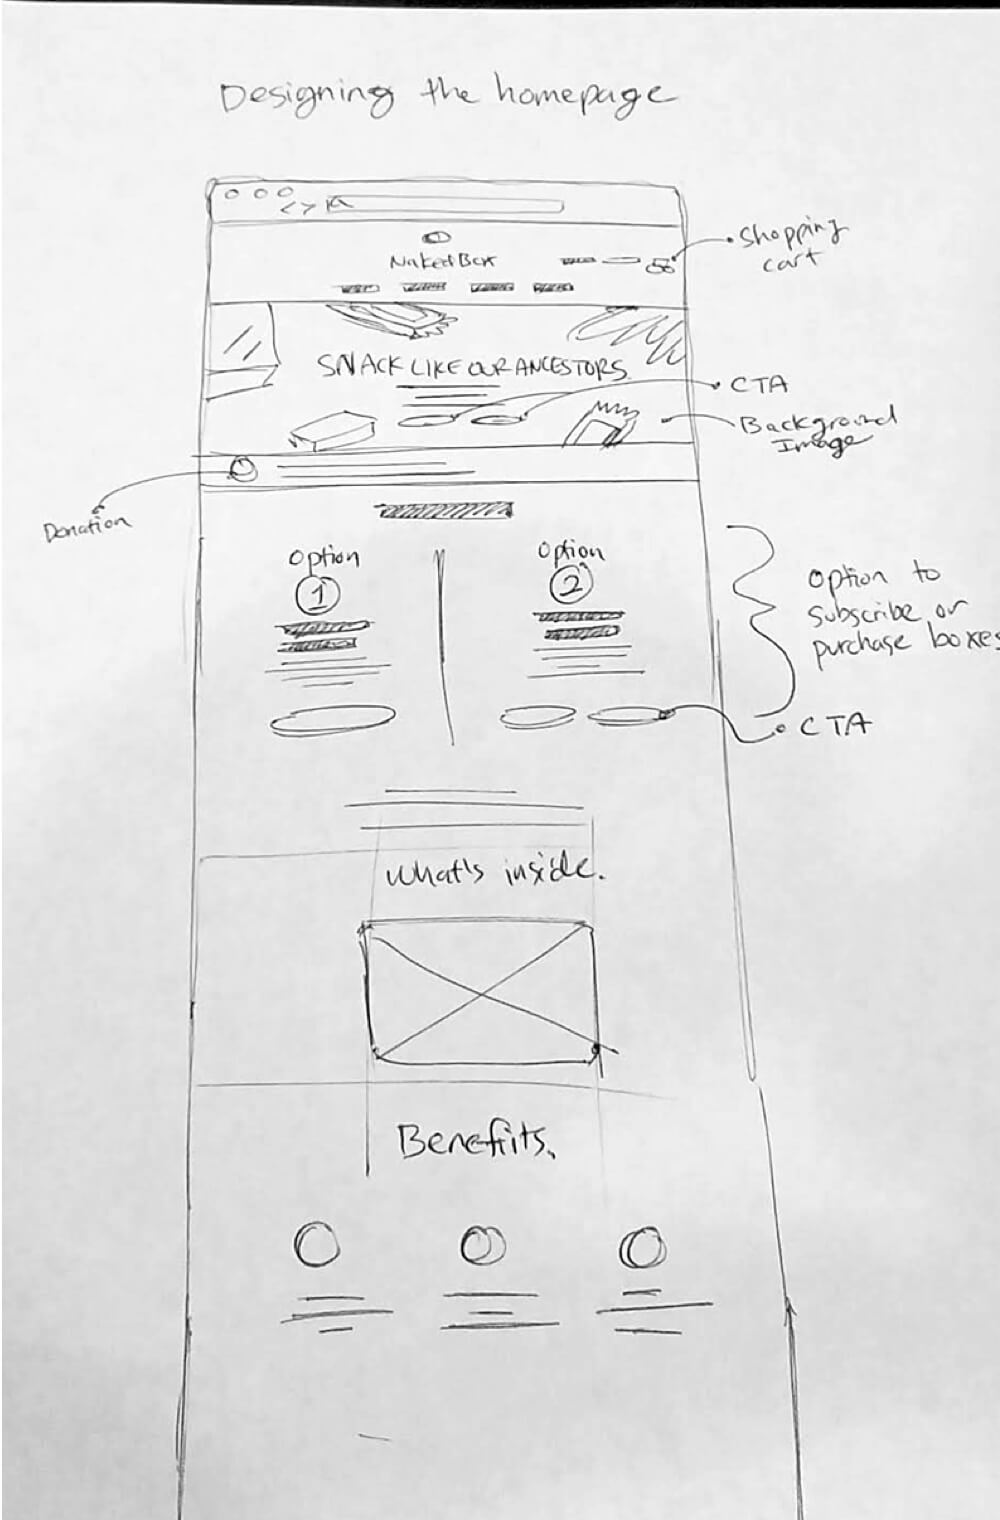 Designing the homepage
Shopping
cart
NakedBox
SNACK LIKE OUR ANCESTORS.
CTA
Background
Image
Donation
Option
1
Option
2
Option to
subscribe or
purchase boxes
CTA
What's inside.
Benefiits.